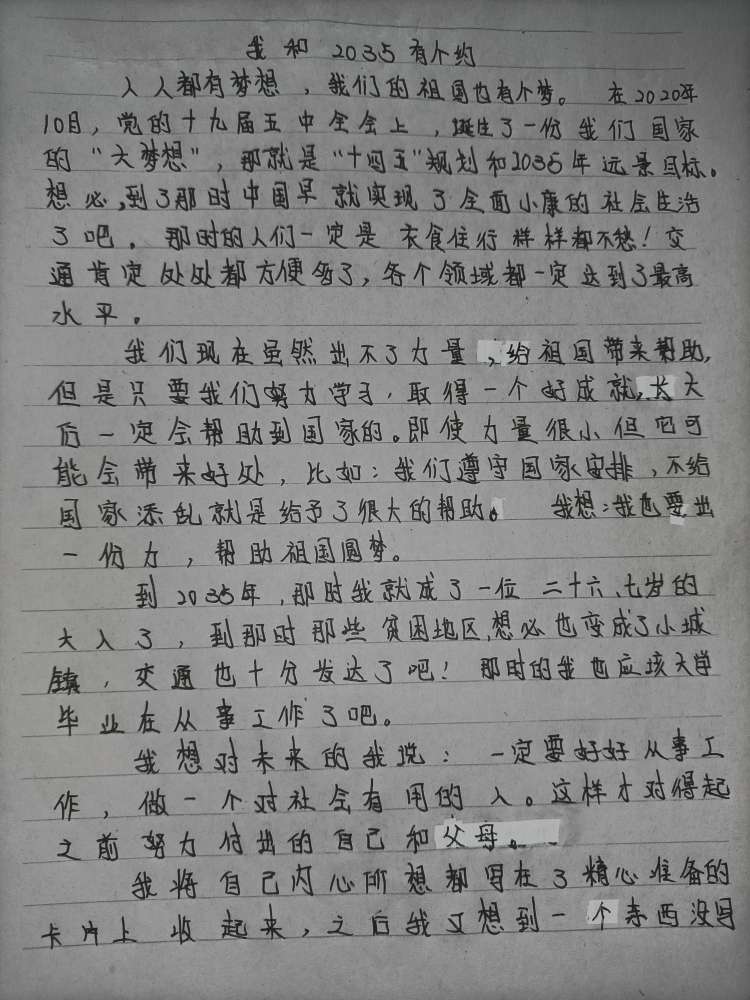 我和2035有个约
人人都有梦想，我们的祖国也有个梦。在2020年
10月，党的十九届五中全会上，诞生了一份我们国家
的“大梦想”，那就是“十四五”规划和2035年远景目标。
想必，到了那时中国早就实现了全面小康的社会生活
了吧。那时的人们一定是衣食住行样样都不愁！交
通肯定处处都方便多了，各个领域都一定达到了最高
水平。
我们现在虽然出不了力量，给祖国带来帮助，
但是只要我们努力学习，取得一个好成就，长大
后一定会帮助到国家的。即使力量很小但它可
能会带来好处，比如：我们遵守国家安排，不给
国家添乱就是给予了很大的帮助。我想：我也要出
一份力，帮助祖国圆梦。
到2035年，那时我就成了一位二十六、七岁的
大人了，到那时那些贫困地区，想必也变成了小城
镇，交通也十分发达了吧！那时的我也应该大学
毕业在从事工作了吧。
我想对未来的我说：一定要好好从事工
作，做一个对社会有用的人。这样才对得起
之前努力付出的自己和父母。
我将自己内心所想都写在了精心准备的
卡片上收起来，之后我又想到一个东西没写